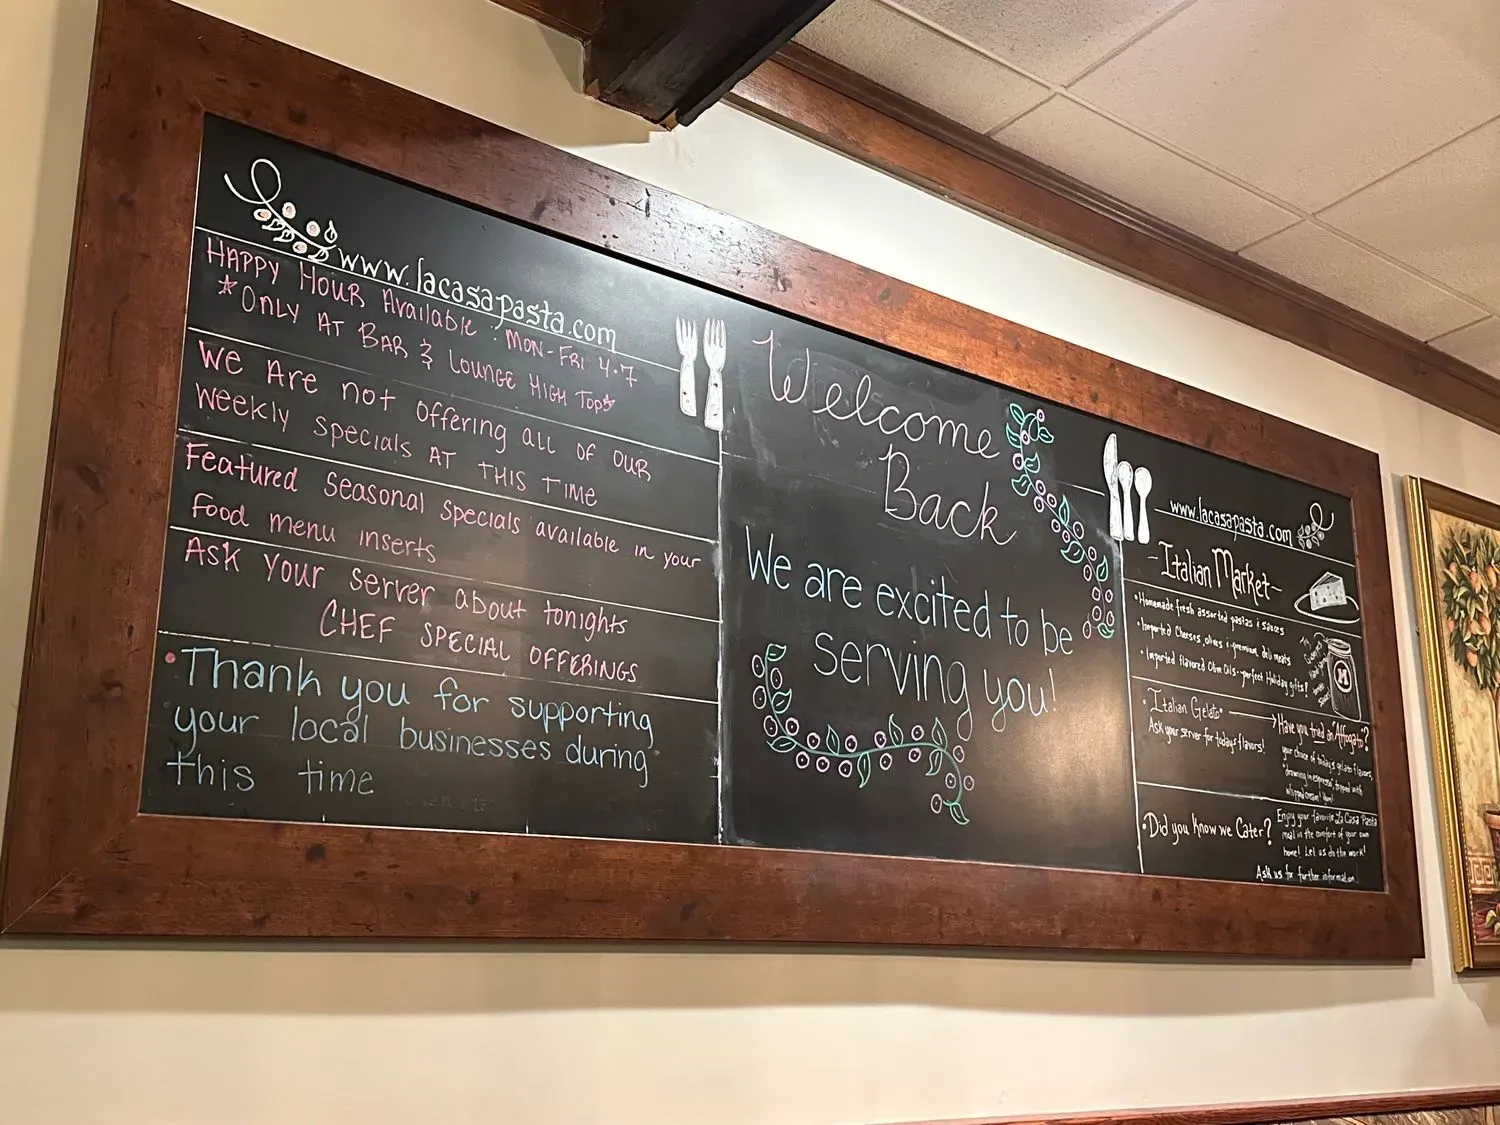 www.lacasapasta.com
HAPPY HOUR Available: MON-FRI 4-7
*ONLY AT BAR & LOUNGE HIGH TOPS*
We Are not offering ALL OF OUR
Weekly Specials AT THIS TIME
Featured Seasonal Specials available in your
Food menu inserts
ASK YOUR Server about tonights
CHEF SPECIAL OFFERINGS
•Thank you for supporting
your local businesses during
this time
Welcome
Back
We are excited to be
serving you!
www.lacasapasta.com
-Italian Market-
•Homemade fresh assorted pastas & sauces
•Imported Cheeses, olives & premium deli meats
•Imported flavored Olive Oils-perfect Holiday gifts!
M
•Italian Gelato•
Ask your server for todays flavors!
Have you tried an "Affogato"?
your choice of today's gelato flavors,
"drowning in espresso", topped with
whipped cream! Yum!
•Did you Know we Cater?
Enjoy your favorite La Casa Pasta
meal in the comfort of your own
home! Let us do the work!
Ask us for further information